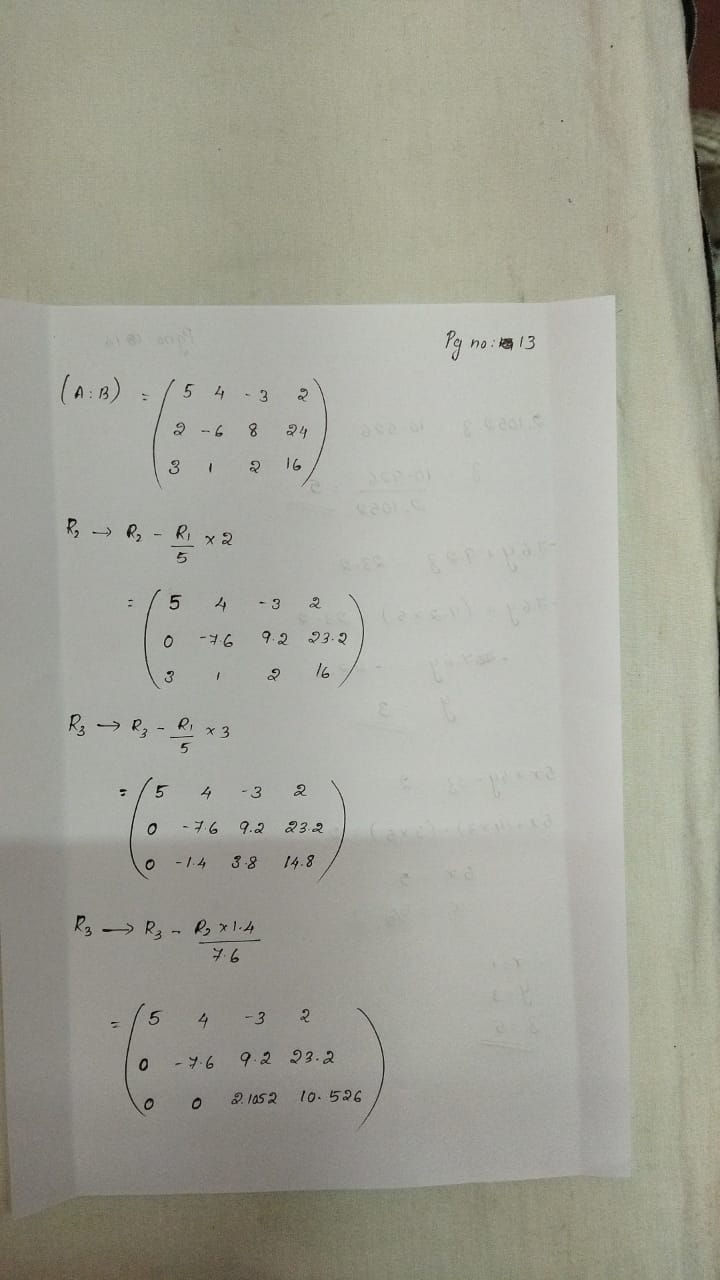 Pg no: 13
(A:B) = ( 5 4 -3 2
2 -6 8 24
3 1 2 16 )
R₂ → R₂ - R₁/5 × 2
= ( 5 4 -3 2
0 -7.6 9.2 23.2
3 1 2 16 )
R₃ → R₃ - R₁/5 × 3
= ( 5 4 -3 2
0 -7.6 9.2 23.2
0 -1.4 3.8 14.8 )
R₃ → R₃ - R₂ × 1.4 / 7.6
= ( 5 4 -3 2
0 -7.6 9.2 23.2
0 0 2.1052 10.526 )